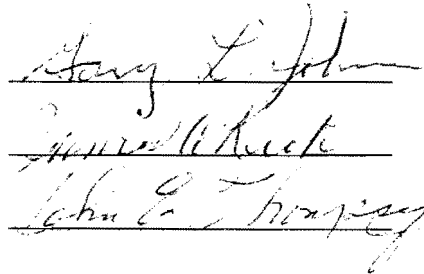 Gary L. John
A. Keck
John E. Thompson